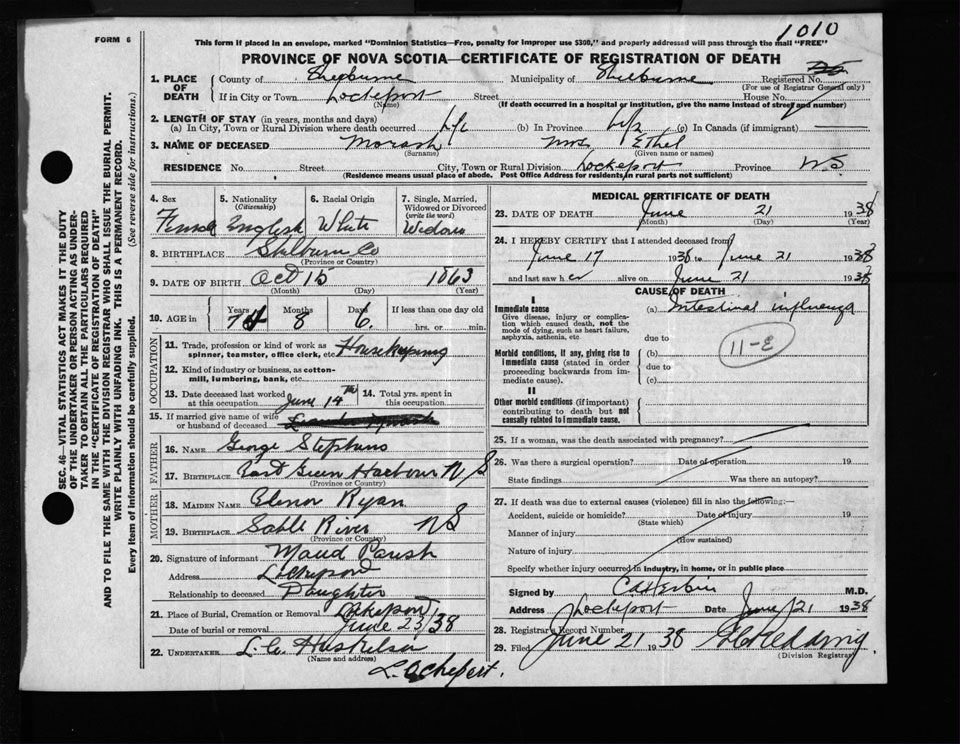 1010
FORM 6
This form if placed in an envelope, marked "Dominion Statistics—Free, penalty for improper use $300," and properly addressed will pass through the mail "FREE"
PROVINCE OF NOVA SCOTIA—CERTIFICATE OF REGISTRATION OF DEATH
1. PLACE OF DEATH County of Shelburne Municipality of Shelburne Registered No.
(For use of Registrar General only)
If in City or Town Lockeport Street House No.
(Name) (If death occurred in a hospital or institution, give the name instead of street and number)
2. LENGTH OF STAY (in years, months and days)
(a) In City, Town or Rural Division where death occurred Life (b) In Province Life (c) In Canada (if immigrant)
3. NAME OF DECEASED Morash Mrs Ethel
(Surname) (Given name or names)
RESIDENCE No. Street City, Town or Rural Division Lockeport Province N.S.
(Residence means usual place of abode. Post Office Address for residents in rural parts not sufficient)
4. Sex Female
5. Nationality (Citizenship) English
6. Racial Origin White
7. Single, Married, Widowed or Divorced (write the word) Widow
8. BIRTHPLACE Shelburne Co
(Province or Country)
9. DATE OF BIRTH Oct 15 1863
(Month) (Day) (Year)
10. AGE in Years 74 Months 8 Days 6. If less than one day old
hrs. or min.
OCCUPATION
11. Trade, profession or kind of work as spinner, teamster, office clerk, etc. Housekeeping
12. Kind of industry or business, as cotton-mill, lumbering, bank, etc.
13. Date deceased last worked at this occupation June 14th
14. Total yrs. spent in this occupation
15. If married give name of wife or husband of deceased
FATHER
16. NAME George Stephens
17. BIRTHPLACE East Green Harbour N S
(Province or Country)
MOTHER
18. MAIDEN NAME Elenor Ryan
19. BIRTHPLACE Sable River NS
(Province or Country)
20. Signature of informant Maud Parish
Address Lockeport
Relationship to deceased Daughter
21. Place of Burial, Cremation or Removal Lockeport
Date of burial or removal June 23/38
22. UNDERTAKER L. C.
(Name and address)
Lockeport.
MEDICAL CERTIFICATE OF DEATH
23. DATE OF DEATH June 21 1938
(Month) (Day) (Year)
24. I HEREBY CERTIFY that I attended deceased from
June 17 1938 to June 21 1938
and last saw her alive on June 21 1938
CAUSE OF DEATH
I
Immediate cause
Give disease, injury or complication which caused death, not the mode of dying, such as heart failure, asphyxia, asthenia, etc.
(a) Intestinal influenza
due to
Morbid conditions, if any, giving rise to immediate cause (stated in order proceeding backwards from immediate cause).
(b)
due to
(c)
11-E
II
Other morbid conditions (if important) contributing to death but not causally related to immediate cause.
25. If a woman, was the death associated with pregnancy?
26. Was there a surgical operation? Date of operation 19
State findings Was there an autopsy?
27. If death was due to external causes (violence) fill in also the following:—
Accident, suicide or homicide? Date of injury 19
(State which)
Manner of injury
(How sustained)
Nature of injury
Specify whether injury occurred in industry, in home, or in public place
Signed by M.D.
Address Lockeport Date June 21 1938
28. Registrar's Record Number
29. Filed June 21 1938
(Division Registrar)
SEC. 46—VITAL STATISTICS ACT MAKES IT THE DUTY
OF THE UNDERTAKER OR PERSON ACTING AS UNDER-
TAKER TO OBTAIN ALL THE PARTICULARS REQUIRED
IN THE "CERTIFICATE OF REGISTRATION OF DEATH"
AND TO FILE THE SAME WITH THE DIVISION REGISTRAR WHO SHALL ISSUE THE BURIAL PERMIT.
WRITE PLAINLY WITH UNFADING INK. THIS IS A PERMANENT RECORD.
Every item of information should be carefully supplied. (See reverse side for instructions.)